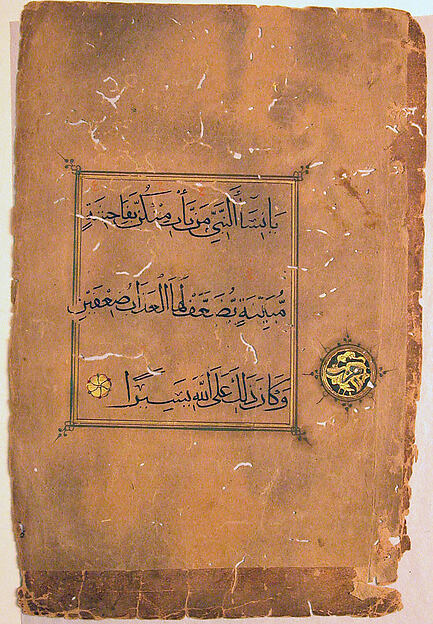 يَا نِسَآءَ النَّبِيِّ مَن يَأْتِ مِنكُنَّ بِفَاحِشَةٍ
مُّبَيِّنَةٍ يُضَعَّفْ لَهَا الْعَذَابُ ضِعْفَيْنِ
وَكَانَ ذَٰلِكَ عَلَى اللَّهِ يَسِيرًا